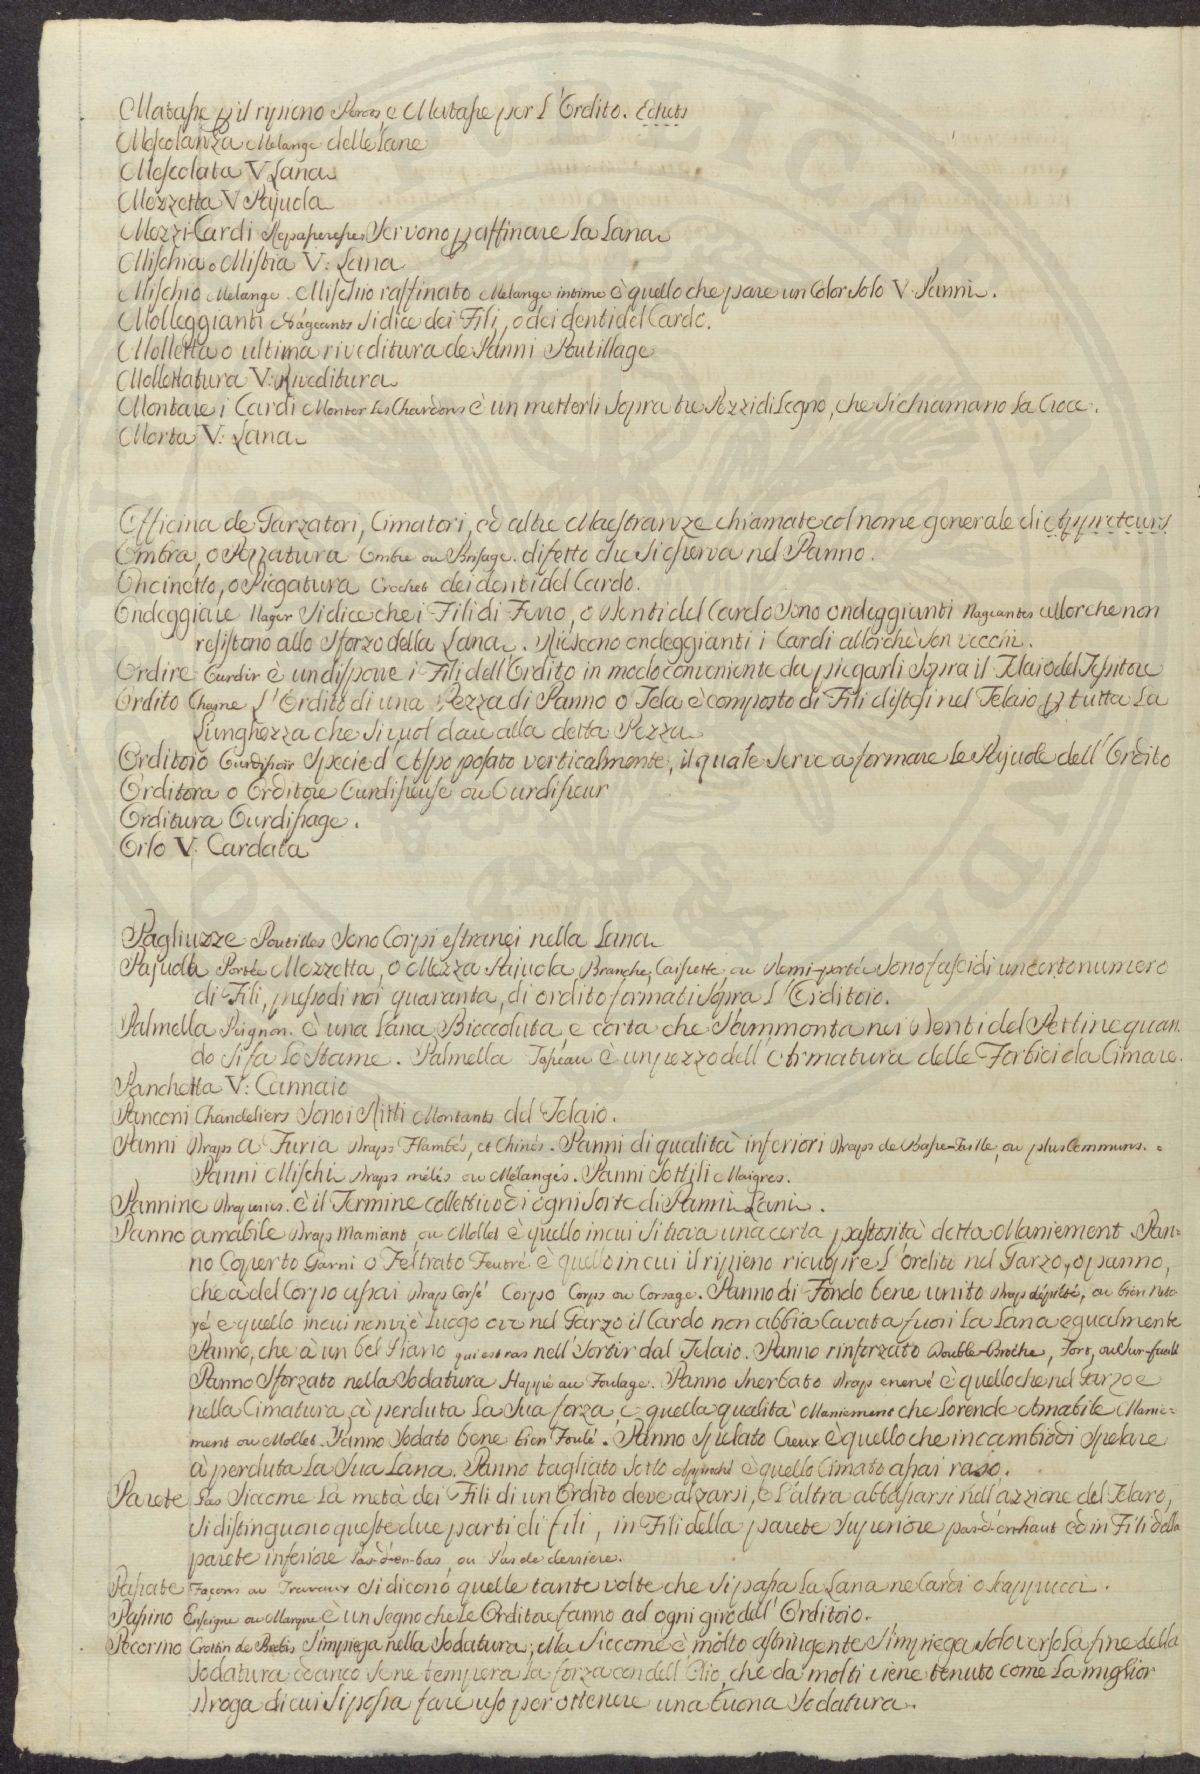 Matasse p il ripieno e Matasse per L'Ordito. Echets
Mescolanza Melange delle Lane
Mescolata V Lana
Mezzetta V Pajuola
Mezzi-Cardi Repasseresses Servono p affinare La Lana
Mischia o Mistia V: Lana
Mischio Melange. Mischio raffinato Melange intime è quello che pare un Color solo V. Panni.
Molleggianti Nageants si dice dei Fili, o dei denti del Cardo.
Molletta o ultima riveditura de Panni Poutillage
Mollettatura V: Riveditura
Montare i Cardi Monter Les Chardons è un metterli sopra tre Pezzi di Legno, che si chiamano La Croce.
Morta V: Lana
Officina de Garzatori, Cimatori, ed altre Maestranze chiamate col nome generale di Appreteurs
Ombra, o Pezzatura Ombre ou Brisage. difetto che si osserva nel Panno.
Oncinetto, o Piegatura Crochet dei denti del Cardo.
Ondeggiare Nager Si dice che i Fili di Ferro, o Denti del Cardo sono ondeggianti Nageantes allorche non
resistono allo Sforzo della Lana. Riescono ondeggianti i Cardi allorchè son vecchi.
Ordire Ourdir è un disporre i Fili dell'Ordito in modo conveniente da piegarli sopra il Telaio del Tessitore
Ordito Chayne L'Ordito di una Pezza di Panno o Tela è composto di Fili distesi nel Telaio p tutta La
Lunghezza che si vuol dare alla detta Pezza
Orditoio Ourdissoir Specie d'Aspo posato verticalmente, il quale serve a formare Le Pajuole dell'Ordito
Orditora o Orditore Ourdisseuse ou Ourdisseur
Orditura Ourdissage.
Orlo V. Cardata
Pagliuzze Poutilles Sono Corpi estranei nella Lana
Pajuola Portée Mezzetta, o Mezza Pajuola Branche, Caissette, ou Demi-portée sono fasci di un certo numero
di Fili, presso di noi quaranta, di ordito formati sopra L'Orditoio.
Palmella Peignon. è una Lana Bioccoluta e corta che s'ammonta nei Denti del Pettine quan:
do si fa Lo Stame. Palmella Tasseau è un pezzo dell'Armatura delle Forbici da Cimare.
Panchetta V: Cannaio
Panconi Chandeliers Sono i Ritti Montants del Telaio.
Panni Draps a Furia Draps Flambés, et Chinés. Panni di qualità inferiori Draps de Basse-Taille, ou plus Communs.
Panni Mischi Draps mélés ou Mélangés. Panni Sottili Maigres.
Pannine Draperies. è il Termine collettivo di ogni sorte di Panni Lani.
Panno amabile Drap Maniant ou Mollet è quello in cui si trova una certa pastosità detta Maniement. Pan=
no Coperto Garni o Feltrato Feutré è quello in cui il ripieno ricuopre L'ordito nel Garzo, o panno,
che à del Corpo assai Drap Corsé Corpo Corps ou Corsage. Panno di Fondo bene unito ou bien
è quello in cui non vi è Luogo ove nel Garzo il Cardo non abbia Cavata fuori La Lana egualmente
Panno, che à un bel Piano qui est ras nell'Sortir dal Telaio. Panno rinforzato Double-Broche, Fort,
Panno Sforzato nella Sodatura Happé au Foulage. Panno Snerbato Drap enervé è quello che nel Garzo e
nella Cimatura à perduta La Sua forza e quella qualità Maniement che Lo rende Amabile Manie=
ment ou Mollet. Panno Sodato bene bien Foulé. Panno Spelato Creux è quello che in cambio di Spelare
à perduta La Sua Lana. Panno tagliato Sotto Approché è quello Cimato assai raso.
Parete Pas Siccome La metà dei Fili di un Ordito deve alzarsi, e L'altra abbassarsi nell'azzione del Telaro,
si distinguono queste due parti di fili, in Fili della parete Superiore pas-d'en-haut ed in Fili della
parete inferiore Pas-d'en-bas, ou Pas de derriere.
Passate Façons ou Travaux si dicono quelle tante volte che si passa La Lana ne Cardi o Scappucci.
Passino Enseigne ou Marque è un Segno che Le Orditore fanno ad ogni giro dell'Orditoio.
Pecorino Crottin de Brebis S'impiega nella Sodatura; Ma Siccome è molto astringente S'impiega solo verso La fine della
Sodatura ed anco Se ne tempera La forza con dell'Olio, che da molti viene tenuto come La miglior
Droga di cui si possa fare uso per ottenere una buona Sodatura.